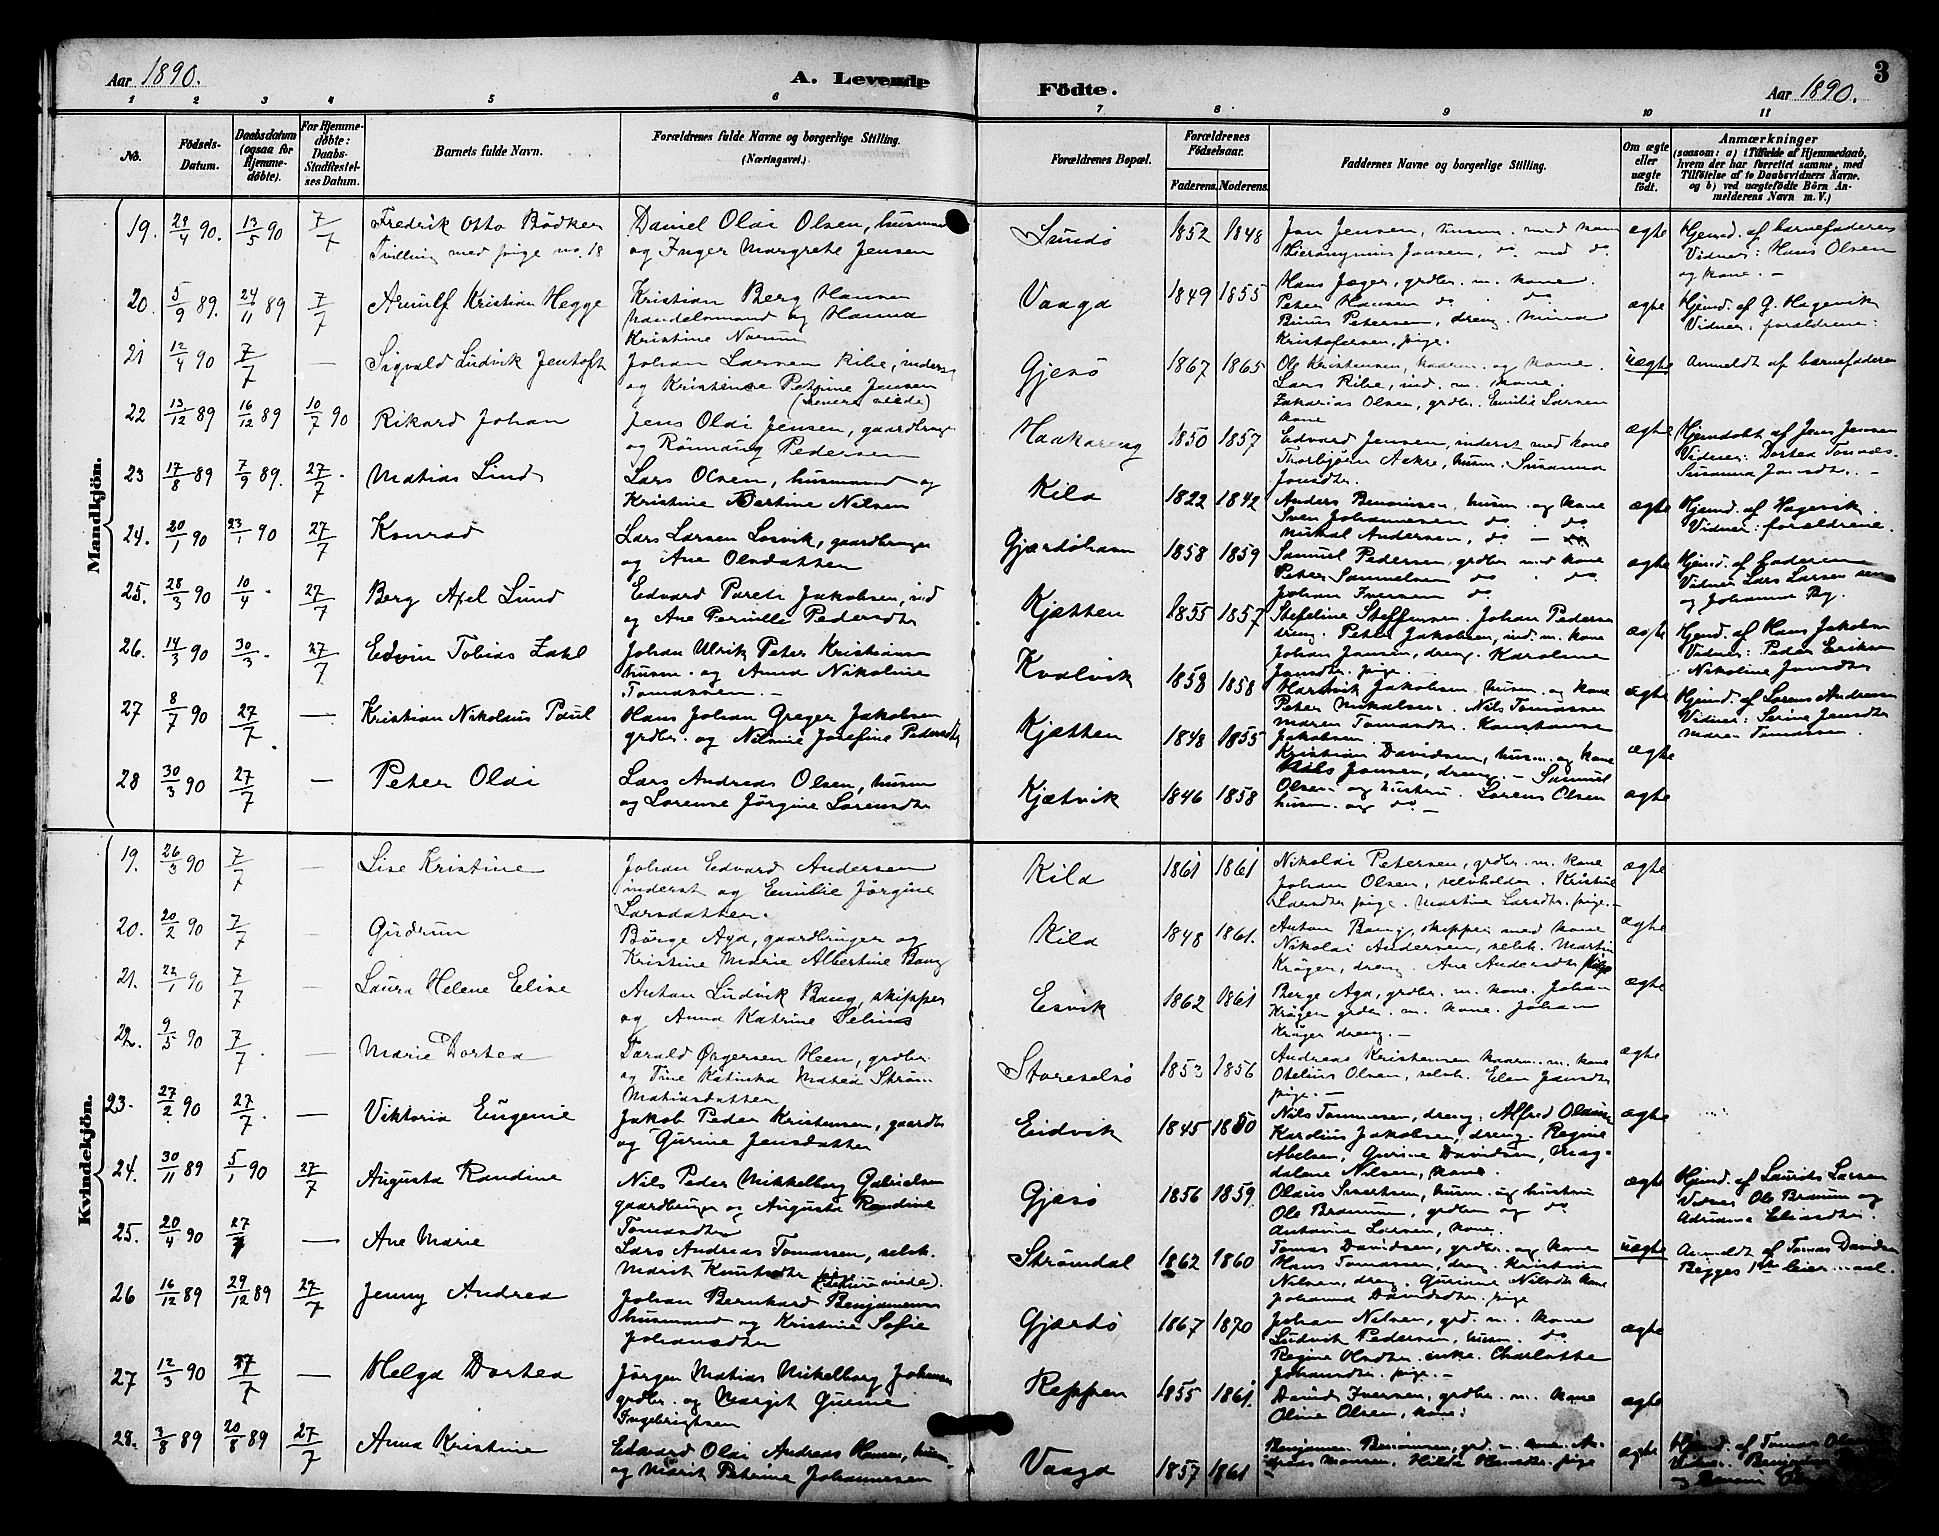 Aar 1890. A. Levende Födte. Aar 1890. 3
1 2 3 4 5 6 7 8 9 10 11
No. Födsels-Datum. Daabsdatum (ogsaa for Hjemmedöbte). For Hjemmedöbte: Daabs-Stadfæstelses Datum. Barnets fulde Navn. Forældrenes fulde Navne og borgerlige Stilling. (Næringsvei.) Forældrenes Bopæl. Forældrenes Födselsaar. Faderens. Moderens. Faddernes Navne og borgerlige Stilling. Om ægte eller uægte födt. Anmærkninger (saasom: a) i Tilfælde af Hjemmedaab, hvem der har forrettet samme, med Tilföielse af to Daabsvidners Navne. og b) ved uægtefödte Börn Anmelderens Navn m. V.)
Mandkjön.
19. 23/4 90. 13/5 90 7/7 Fredrik Otto Bödker Daniel Olai Olsen, husmand Sundö 1852 1848 Jon Jensen, husm. med kone ægte Hjemd. af barnefaderen
Tvilling med pige no. 18 og Inger Margrete Jensen Hieronymus Jensen, do. med do. Vidner: Hans Olsen
og kone. -
20. 5/9 89. 24/11 89 7/7 Arnulf Kristian Hegge Kristian Berg Hansen Vaaga 1849 1855 Hans Jæger, grdbr. m. kone. ægte Hjemd. af G. Hagevik
handelsmand og Hanna Peter Hansen do. do. Vidner: forældrene.
Kristine Norum Petersen, dreng. Kristofersen, pige.
21 12/4 90 7/7 — Sigvald Ludvik Jentoft Johan Larsen Kibe, inderst Gjesö 1867 1865 Ole Kristensen, kaarm. og kone. uægte Anmeldt af barnefaderen
og Kristence Petrine Jensen Lars Kibe, ind. m. kone.
Zakarias Olsen, grdbr. Emilie Larsen kone
22 13/12 89 16/12 89 10/7 90 Rikard Johan Jens Olai Jensen, gaardbruger Haakareng 1850 1857 Edvard Jensen, inderst med kone ægte Hjemdöbt af Jens Jensen
og Rönnaug Pedersen Thorbjörn Aakre, husm. Susanna Jonsdtr. Vidner: Dortea Tomas.
Susanna Jonsdtr. -
23 17/8 89 7/9 89. 27/7 Matias Lind Lars Olsen, husmand og Kila 1822 1842 Anders Benonisen, husm. og kone ægte Hjemd. af Hagevik
Kristine Bertine Nilsen Sven Johannesen do. do. Mikal Andersen, do. Vidner: forældrene.
24. 20/1 90 23/1 90 27/7 Konrad Lars Larsen Losvik, gaardbruger Gjærdöhavn 1858 1859 Samuel Pedersen, grdbr. med kone ægte Hjemd. af faderen
og Ane Olsdatter Peter Samuelsen do. do. Johan Iversen do. Vidner Lars Larsen sen
og Johanna
25. 28/3 90 10/4 27/7 Berg Axel Lund Edvard Pareli Jakobsen, ind Kjætten 1855 1857 Stefeline Steffensen. Johan Pedersen ægte Hjemd. af Hans Jakobsen
og Ane Pernille Pedersdtr dreng. Peter Jakobsen, ind. m. kone Vidner: Peder Eriksen
Nikoline Jonsdtr
26. 14/3 90 30/3 27/7 Edvin Tobias Zahl Johan Ulrik Peter Kristiansen Kvalvik 1858 1858 Johan Jensen, dreng. Karoline Jonsdtr. pige. ægte Hjemd. af Lorens Andersen
husm. og Anna Nikoline Hartvik Jakobsen, husm. og kone Vidner: Serine Jensdtr
Tomassen. Peter Mikalsen. Nils Tomassen Maren Tomassen.
27 8/7 90 27/7 — Kristian Nikolaus Paul Hans Johan Greger Jakobsen Kjætten 1848 1855 Maren Tomasdtr. Konstanse Jakobsen ægte
grdbr. og Nilsine Josefine Pedersdtr Kristian Davidsen, husm. og kone
28 30/3 90 27/7 — Peter Olai Lars Andreas Olsen, husm Kjætvik 1846 1858 Nils Jonsen, dreng. - Samuel Olsen og hustru. Lorens Olsen ægte
og Lorense Jörgine Lorensdtr husm. og do. -
Kvindekjön.
19. 26/3 90 7/7 — Lise Kristine Johan Edvard Andersen Kila 1861 1861 Nikolai Petersen, grdbr. m. kone ægte
inderst og Emilie Jörgine Johan Olsen, selvholder. Kristine
Larsdatter. Larsdtr pige. Martine Larsdtr. pige. -
20. 20/2 90 7/7 — Gudrun Börge Aga, gaardbruger og Kila 1848 1861. Anton Bang, skipper med kone ægte
Kristine Marie Albertine Bang Nikolai Andersen, selvh. Martin Kröger, dreng. Ane Andersdtr pige
21. 22/1 90 7/7 — Laura Helene Elise Anton Ludvik Bang, skipper Esvik 1862 1861 Berge Aga, grdbr. m. kone. Johan ægte
og Anna Katrine Selius Kröger grdbr. m. kone. Johan Kröger dreng. -
22. 9/5 90 7/7 — Marie Dortea Tarald Örgersen Heen, grdbr. Storeselsö 1853 1856 Andreas Kristensen kaarm. m. kone ægte
og Tine Katinka Matea Ström Otelius Olsen, selvh. Elen Jonsdtr
Matiasdatter pige. -
23. 27/2 90 27/7 — Viktoria Eugenie Jakob Peder Kristensen, gaardbr Eidvik 1845 1850 Nils Tommesen, dreng. Alfred ægte
og Gurine Jensdatter Karolius Jakobsen, dreng. Regine Abelsen, Gurine Davidsen, Magdalene Nilsen, kone.
24. 30/11 89 5/1 90 27/7 Augusta Randine Nils Peder Mikkelborg Gabrielsen Gjæsö 1856 1859 Olaus Sivertsen, husm. og hustru ægte Hjemd. af Laurits Larsen
gaardbruger og Augusta Randine Ole Brannum, grdbr og do. Vidner Ole Brannum og
Tomasdtr Antonia Larsen, kone. Adriana Eliasdtr.
25. 20/4 90 27/7 — Ane Marie Lars Andreas Tomassen, selvh. Strömdal 1862 1860 Tomas Davidsen, grdbr. og kone uægte Anmeldt af Tomas Davidsen
Marit Knutsdtr Hans Tomassen, dreng. Kristian Nilsen, dreng. Gurine Nilsdtr kone Begges 1ste leier...aal.
Johanna Davidsdtr. pige
26 16/12 89 29/12 89 27/7 Jenny Andrea Johan Bernhard Benjaminsen Gjærdö 1867 1870 Johan Nilsen, grd. m. kone ægte
husmand og Kristine Sofie Ludvik Pedersen, husm. do.
Johansdtr Regine Olsdtr. enke. Charlotte Johansdtr. pige. -
27 12/3 90 27/7 — Helga Dortea Jörgen Matias Mikelborg Johansen Reppen 1855 1861. David Iversen, grdbr. m. kone ægte
grdbr. og Margit Gurine Oline Olsen, kone.
Ingebrigtsen
28. 3/8 89 20/8 89 27/7 Anna Kristine Edvard Olai Andreas Hansen, husm. Vaaga 1857 1861 Benjamin Benonisen, grd. m. kone. Andreas Monsen, Hilda Hansdtr. pige ægte Hjemd. af Tomas Olsen
og Marit Petrine Johannesen Vidner.